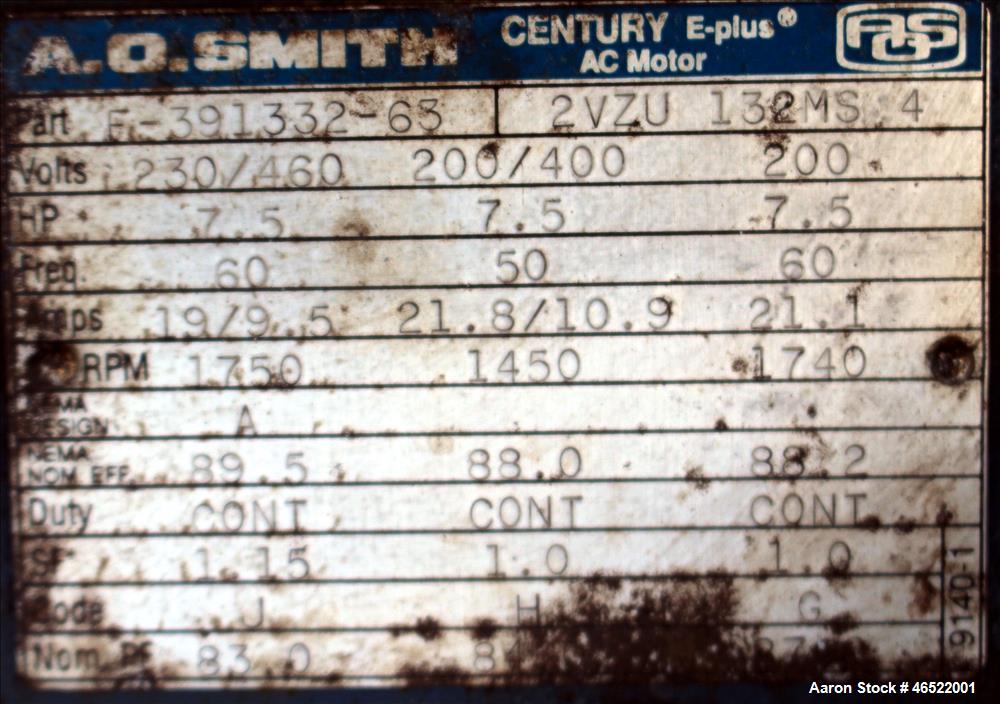 A.O.SMITH CENTURY E-plus® AC Motor AOS
Part F-391332-63 2VZU 132MS 4
Volts 230/460 200/400 200
HP 7.5 7.5 7.5
Freq. 60 50 60
Amps 19/9.5 21.8/10.9 21.1
RPM 1750 1450 1740
NEMA DESIGN A
NEMA NOM EFF 89.5 88.0 88.2
Duty CONT CONT CONT
SF 1.15 1.0 1.0
Code J H G
Nom PF 83.0
9140-1
Aaron Stock # 46522001